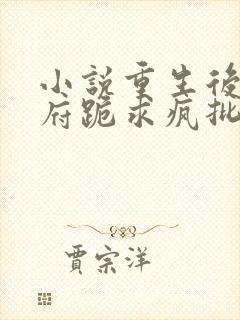 小說重生後
府跪求瘋批
賈宗洋